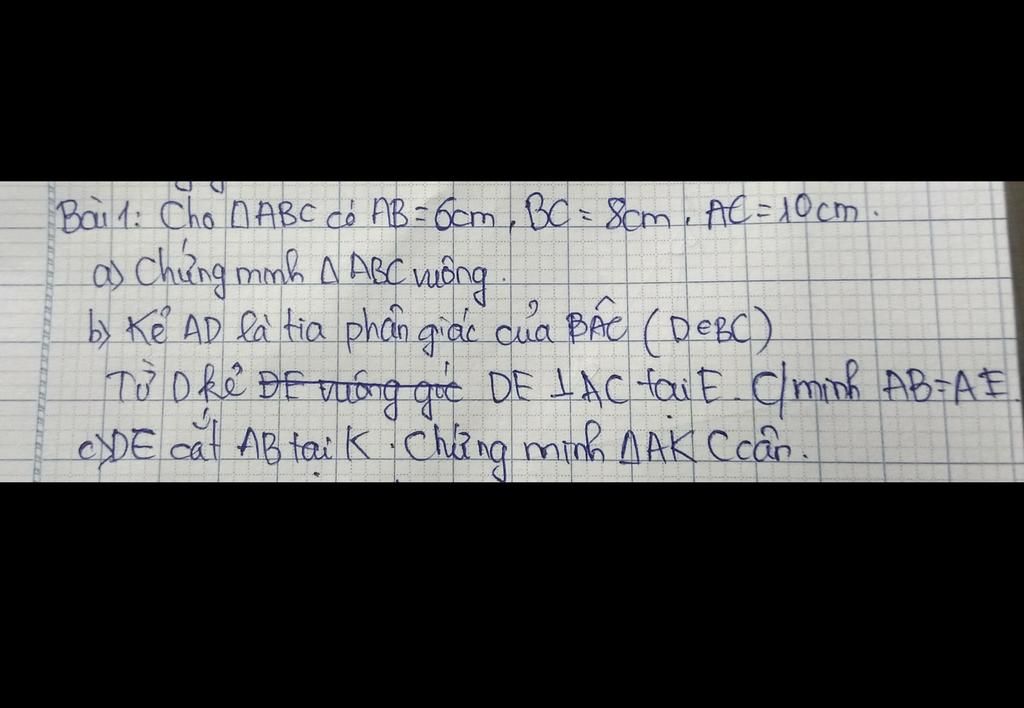 Bài 1: Cho ΔABC có AB = 6cm, BC = 8cm, AC = 10cm.
a) Chứng minh Δ ABC vuông.
b) Kẻ AD là tia phân giác của BÂC (D∈BC)
Từ D kẻ DE vuông góc DE ⊥ AC tại E. C/minh AB = AE.
c) DE cắt AB tại K. Chứng minh ΔAKC cân.